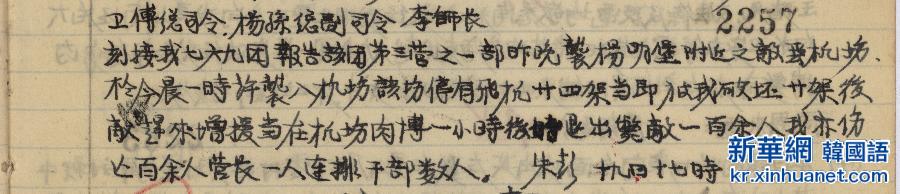 2257
卫傅总司令.杨孙总副司令 李师长
刻接我七六九团报告该团第三营之一部昨晚袭杨明堡附近之敌飞机场.
於今晨一时许袭入机场該场停有飛机廿四架当即被我破坏廿架後
敌増援当在机场肉博一小時後退出毙敌一百余人我亦伤
亡百余人营长一人连排干部数人。 朱彭 廿四七時
新華網 韓國語
kr.xinhuanet.com